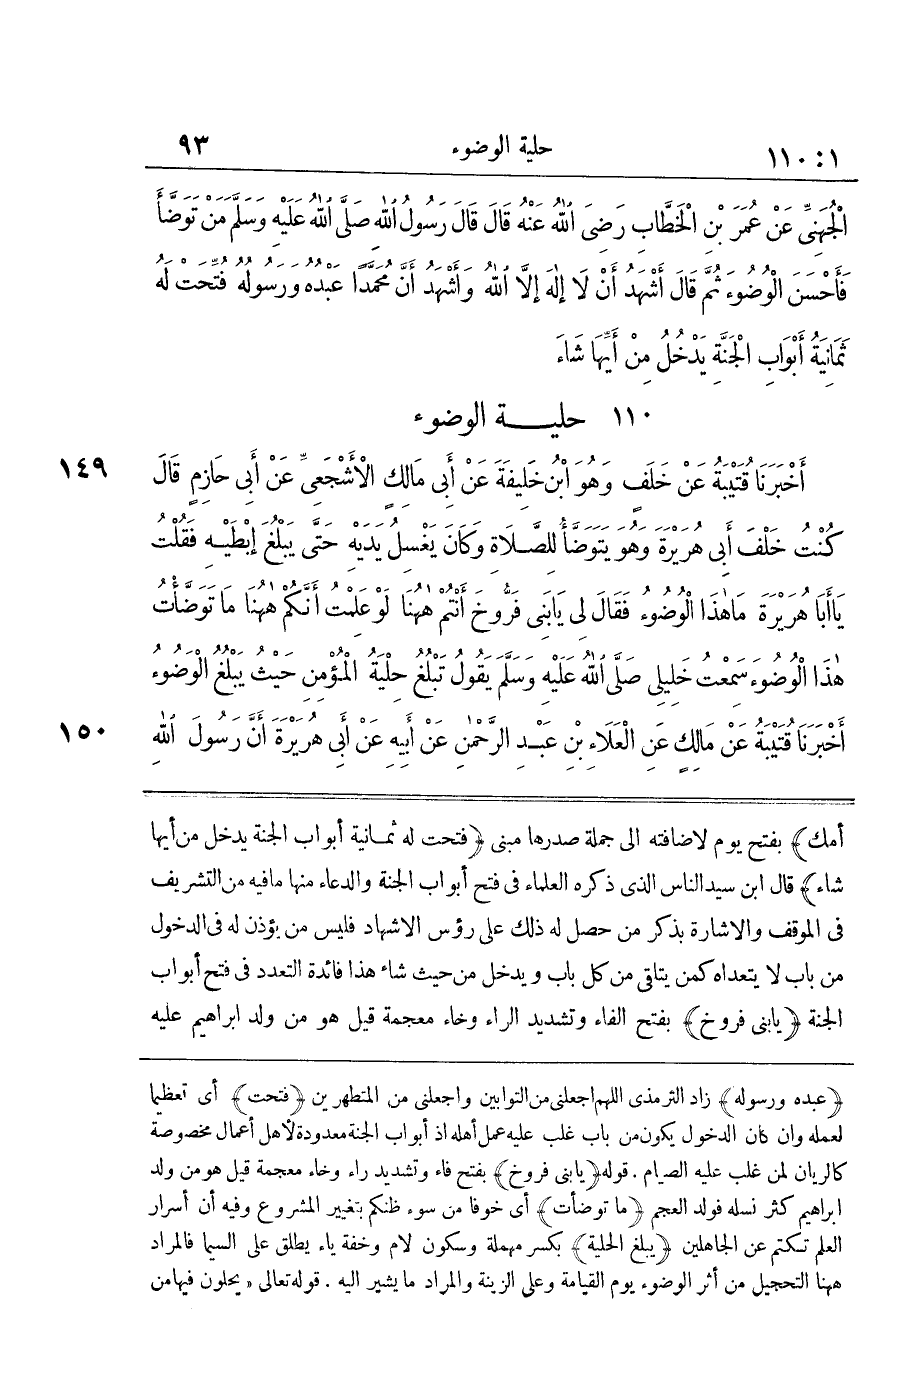 ١ : ١١٠ حلية الوضوء ٩٣
الْجُهَنِيِّ عَنْ عُمَرَ بْنِ الْخَطَّابِ رَضِيَ اللهُ عَنْهُ قَالَ قَالَ رَسُولُ اللهِ صَلَّى اللهُ عَلَيْهِ وَسَلَّمَ مَنْ تَوَضَّأَ
فَأَحْسَنَ الْوُضُوءَ ثُمَّ قَالَ أَشْهَدُ أَنْ لَا إِلٰهَ إِلَّا اللهُ وَأَشْهَدُ أَنَّ مُحَمَّدًا عَبْدُهُ وَرَسُولُهُ فُتِّحَتْ لَهُ
ثَمَانِيَةُ أَبْوَابِ الْجَنَّةِ يَدْخُلُ مِنْ أَيِّهَا شَاءَ
١١٠ حليـــة الوضوء
أَخْبَرَنَا قُتَيْبَةُ عَنْ خَلَفٍ وَهُوَ ابْنُ خَلِيفَةَ عَنْ أَبِى مَالِكٍ الْأَشْجَعِىِّ عَنْ أَبِى حَازِمٍ قَالَ ١٤٩
كُنْتُ خَلْفَ أَبِى هُرَيْرَةَ وَهُوَ يَتَوَضَّأُ لِلصَّلَاةِ وَكَانَ يَغْسِلُ يَدَيْهِ حَتَّى يَبْلُغَ إِبْطَيْهِ فَقُلْتُ
يَاأَبَا هُرَيْرَةَ مَاهٰذَا الْوُضُوءُ فَقَالَ لِى يَابَنِى فَرُّوخَ أَنْتُمْ هٰهُنَا لَوْ عَلِمْتُ أَنَّكُمْ هٰهُنَا مَا تَوَضَّأْتُ
هٰذَا الْوُضُوءَ سَمِعْتُ خَلِيلِى صَلَّى اللهُ عَلَيْهِ وَسَلَّمَ يَقُولُ تَبْلُغُ حِلْيَةُ الْمُؤْمِنِ حَيْثُ يَبْلُغُ الْوُضُوءُ
أَخْبَرَنَا قُتَيْبَةُ عَنْ مَالِكٍ عَنِ الْعَلَاءِ بْنِ عَبْدِ الرَّحْمٰنِ عَنْ أَبِيهِ عَنْ أَبِى هُرَيْرَةَ أَنَّ رَسُولَ اللهِ ١٥٠
أمك﴾ بفتح يوم لاضافته الى جملة صدرها مبنى ﴿فتحت له ثمـانية أبواب الجنة يدخل من أيها
شاء﴾ قال ابن سيد الناس الذى ذكره العلماء فى فتح أبواب الجنة والدعاء منها مافيه من التشريف
فى الموقف والاشارة بذكر من حصل له ذلك على رؤس الاشهاد فليس من يؤذن له فى الدخول
من باب لا يتعداه كمن يتلقى من كل باب ويدخل من حيث شاء هذا فائدة التعدد فى فتح أبواب
الجنة ﴿يابنى فروخ﴾ بفتح الفاء وتشديد الراء وخاء معجمة قيل هو من ولد ابراهيم عليه
﴿عبده ورسوله﴾ زاد الترمذى اللهم اجعلنى من التوابين واجعلنى من المتطهرين ﴿فتحت﴾ أى تعظيما
لعمله وان كان الدخول يكون من باب غلب عليه عمل أهله اذ أبواب الجنة معدودة لأهل أعمال مخصوصة
كالريان لمن غلب عليه الصيام . قوله ﴿يابنى فروخ﴾ بفتح فاء وتشديد راء وخاء معجمة قيل هو من ولد
ابراهيم كثر نسله فولد العجم ﴿ما توضأت﴾ أى خوفا من سوء ظنكم بتغيير المشروع وفيه أن أسرار
العلم تكتم عن الجاهلين ﴿يبلغ الحلية﴾ بكسر مهملة وسكون لام وخفة ياء يطلق على السيما فالمراد
ههنا التحجيل من أثر الوضوء يوم القيامة وعلى الزينة والمراد ما يشير اليه . قوله تعالى «يحلون فيها من